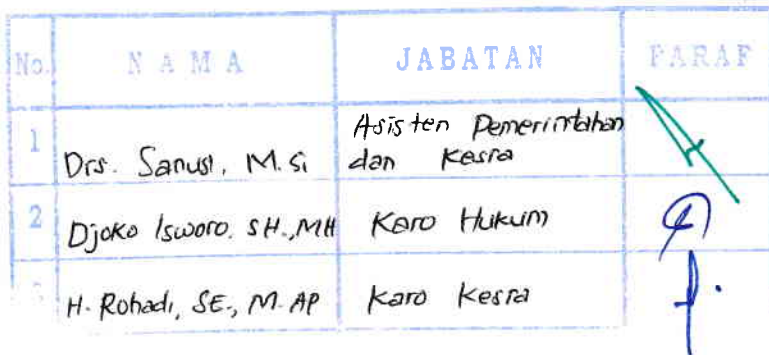 No. NAMA JABATAN PARAF
1 Drs. Sanusi, M. Si Asisten Pemerintahan
dan Kesra
2 Djoko Isworo. SH.,MH Karo Hukum
H. Rohadi, SE., M. AP Karo Kesra